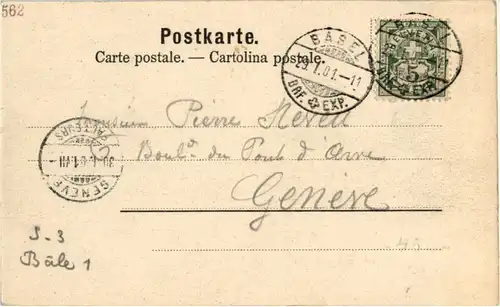 562
Postkarte.
Carte postale. — Cartolina postale.
BASEL
29.I.01.–11
BRF. EXP.
BASEL
BRF. EXP.
5
Monsieur Pierre
Boul.d du Pont d'Arve
Genève
GENEVE
FACTEURS
30.I.01.VII
S-3
Bâle 1